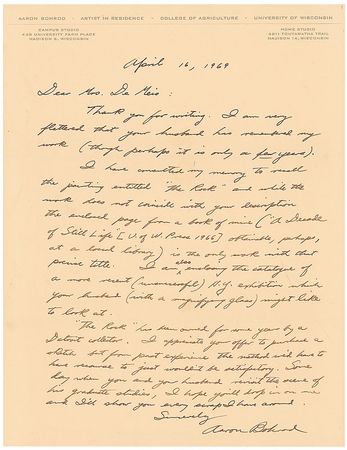 AARON BOHROD · ARTIST IN RESIDENCE · COLLEGE OF AGRICULTURE · UNIVERSITY OF WISCONSIN
CAMPUS STUDIO
432 UNIVERSITY FARM PLACE
MADISON 6, WISCONSIN
HOME STUDIO
4811 TONYAWATHA TRAIL
MADISON 14, WISCONSIN
April 16, 1969
Dear Mrs. De Meis:
Thank you for writing. I am very
flattered that your husband has remembered my
work (though perhaps it is only a few years).
I have consulted my memory to recall
the painting entitled "The Rock" and while the
work does not coincide with your description
the enclosed page from a book of mine ("A Decade
of Still Life" [U. of W. Press 1966] obtainable, perhaps,
at a local library) is the only work with that
precise title. I am also enclosing the catalogue of
a more recent (unsuccessful) N.Y. exhibition which
your husband (with a magnifying glass) might like
to look at.
"The Rock" has been owned for some year by a
Detroit collector. I appreciate your offer to purchase a
sketch but from past experience the method we'd have to
have recourse to just wouldn't be satisfactory. Some
day when you and your husband revisit the scene of
his graduate studies, I hope you'll drop in on me
and I'd show you every scrap I have around.
Sincerely
Aaron Bohrod